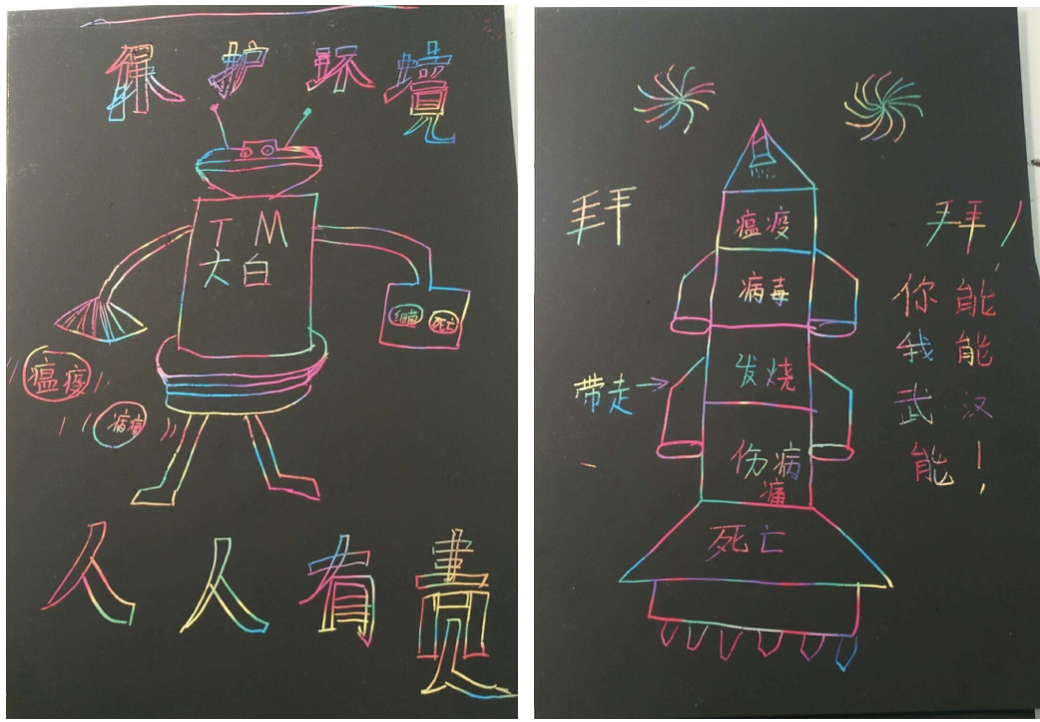 保护环境
TM
大白
细菌 死亡
瘟疫
病毒
人人有责
瘟疫
拜 拜！
病毒
你能
我能
发烧
带走
武汉
伤病
痛
能！
死亡